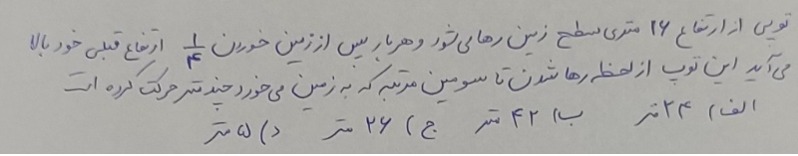 توپی از ارتفاع ۱۶ متری سطح زمین رها می‌شود و هر بار پس از زمین خوردن ۱/۴ ارتفاع قبلی خود بالا
می‌آید این توپ از لحظه رها شدن تا سومین مرتبه که به زمین می‌خورد چند متر حرکت کرده است
الف) ۲۴ متر ب) ۴۲ متر ج) ۲۶ متر د) ۵ متر